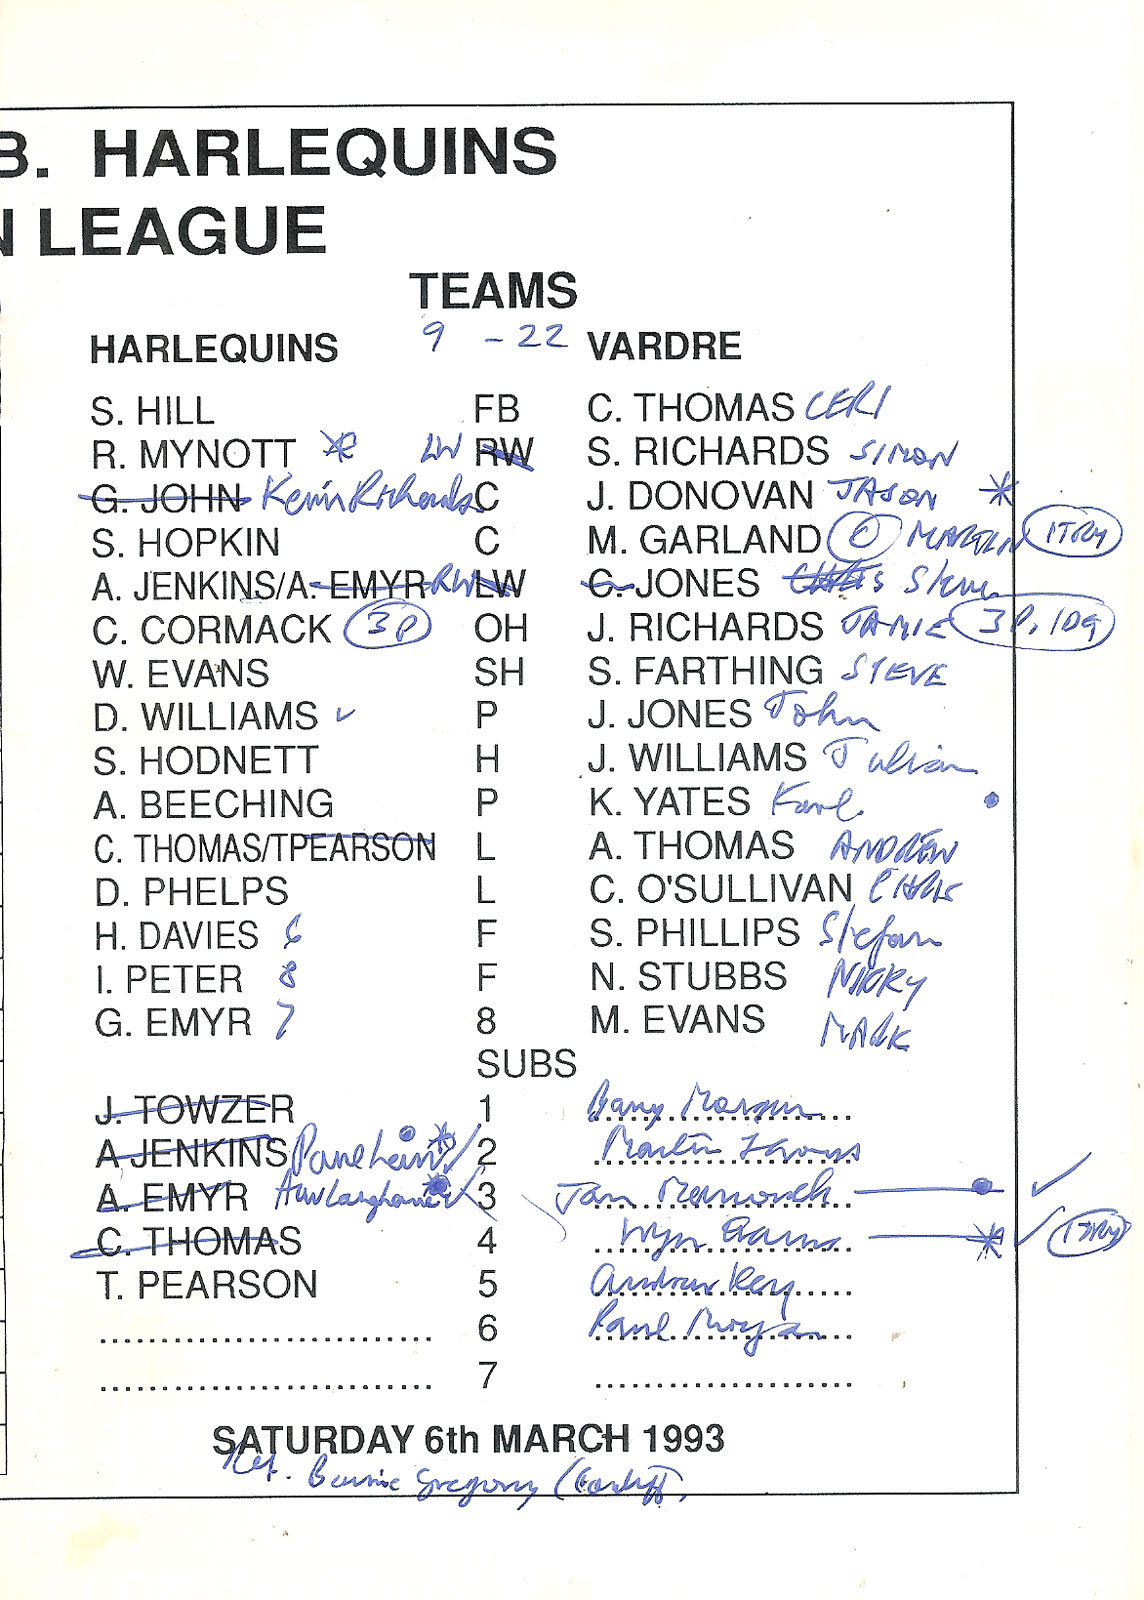 B. HARLEQUINS
N LEAGUE
TEAMS
HARLEQUINS 9 - 22 VARDRE
S. HILL FB C. THOMAS CERI
R. MYNOTT LW RW S. RICHARDS SIMON
G. JOHN Kevin Richards C J. DONOVAN JASON *
S. HOPKIN C M. GARLAND (C) MARTIN 1TRY
A. JENKINS/A. EMYR RW LW C. JONES CHRIS Steve
C. CORMACK 3P OH J. RICHARDS JAMIE 3P, 1DG
W. EVANS SH S. FARTHING STEVE
D. WILLIAMS ✓ P J. JONES John
S. HODNETT H J. WILLIAMS Julian
A. BEECHING P K. YATES Karl •
C. THOMAS/TPEARSON L A. THOMAS ANDREW
D. PHELPS L C. O'SULLIVAN CHRIS
H. DAVIES 6 F S. PHILLIPS Stefan
I. PETER 8 F N. STUBBS NICKY
G. EMYR 7 8 M. EVANS MARK
SUBS
J. TOWZER 1 Barry Morgan
A JENKINS Paul * ✓ 2 Martin Thomas
A. EMYR 3 Jan • ✓
C. THOMAS 4 Wyn Evans * ✓ 1TRY
T. PEARSON 5 Andrew Rey
6 Paul Morgan
7
SATURDAY 6th MARCH 1993
Ref. Bernie Gregory (Cardiff)